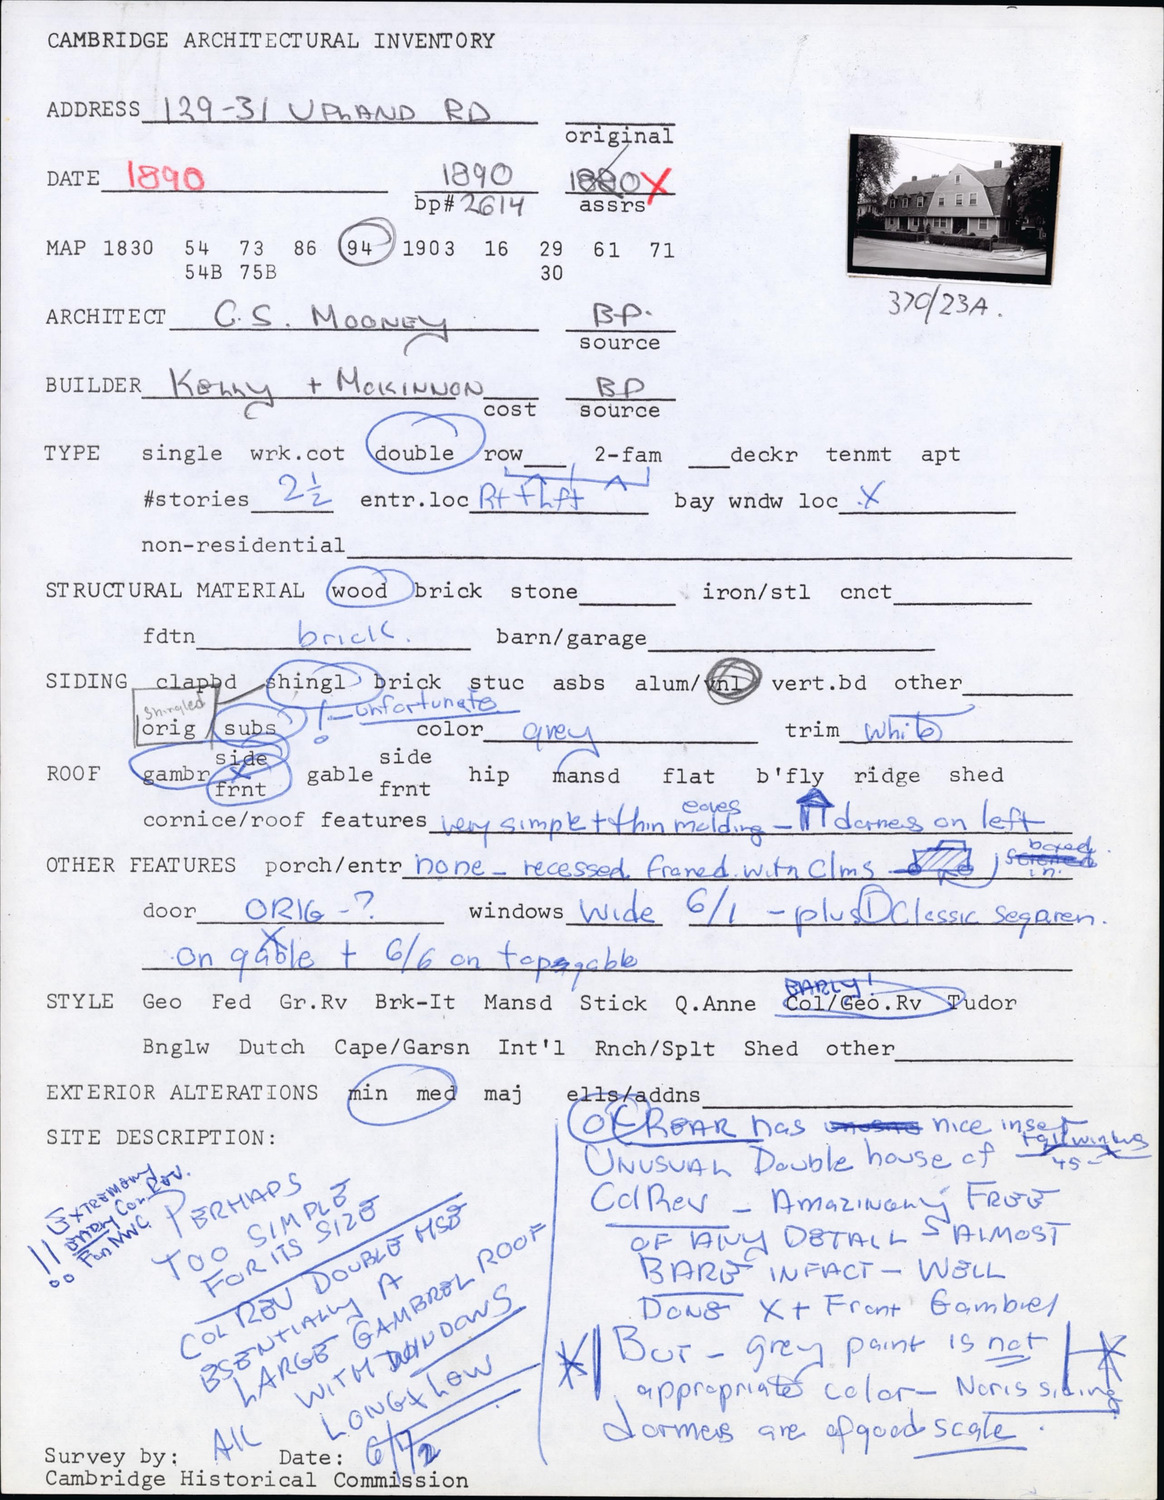 CAMBRIDGE ARCHITECTURAL INVENTORY
ADDRESS 129-31 UPLAND RD
original
DATE 1890 1890 1880 X
bp# 2614 assrs
MAP 1830 54 73 86 94 1903 16 29 61 71
54B 75B 30
370/23A.
ARCHITECT C.S. MOONEY B.P.
source
BUILDER KELLY + MCKINNON BP
cost source
TYPE single wrk.cot double row 2-fam deckr tenmt apt
#stories 2½ entr.loc Rt + Lft bay wndw loc X
non-residential
STRUCTURAL MATERIAL wood brick stone iron/stl cnct
fdtn brick. barn/garage
SIDING clapbd shingl brick stuc asbs alum/vnl vert.bd other
shingled
orig / subs ! - unfortunate color grey trim white
side side
ROOF gambr X gable hip mansd flat b'fly ridge shed
frnt frnt
eaves
cornice/roof features very simple + thin molding - dormers on left
boxed
OTHER FEATURES porch/entr none - recessed framed with Clms screened
in.
door ORIG - ? windows wide 6/1 - plus Classic
on gable + 6/6 on top gable
EARLY!
STYLE Geo Fed Gr.Rv Brk-It Mansd Stick Q.Anne Col/Geo.Rv Tudor
Bnglw Dutch Cape/Garsn Int'l Rnch/Splt Shed other
EXTERIOR ALTERATIONS min med maj ells/addns
SITE DESCRIPTION:
!! EXTREMELY
EARLY COL REV.
FOR NWC
PERHAPS
TOO SIMPLE
FOR ITS SIZE
COL REV DOUBLE HSE
ESSENTIALLY A
LARGE GAMBREL ROOF
WITH WINDOWS
LONG + LOW
REAR has nice inset
UNUSUAL Double house of
Col Rev - AMAZINGLY FREE
OF ANY DETAIL - ALMOST
BARE IN FACT - WELL
DONE X + Front Gambrel
* BUT - grey paint is not *
appropriate color - Nor is siding
dormers are of good scale.
Survey by: AK Date: 6/72
Cambridge Historical Commission